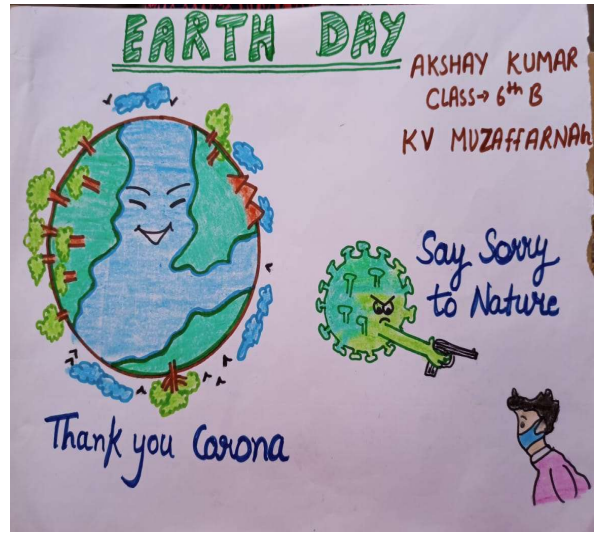 EARTH DAY
AKSHAY KUMAR
CLASS→ 6th B
KV MUZAFFARNAh
Say Sorry
to Nature
Thank you Corona